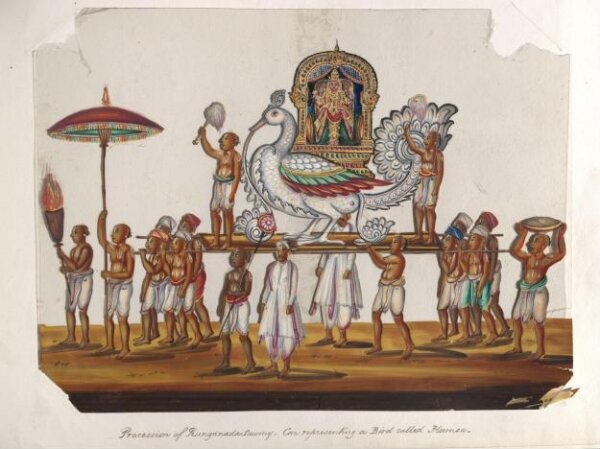 Procession of Runganada Swamy. Con representing a Bird called Humsa.